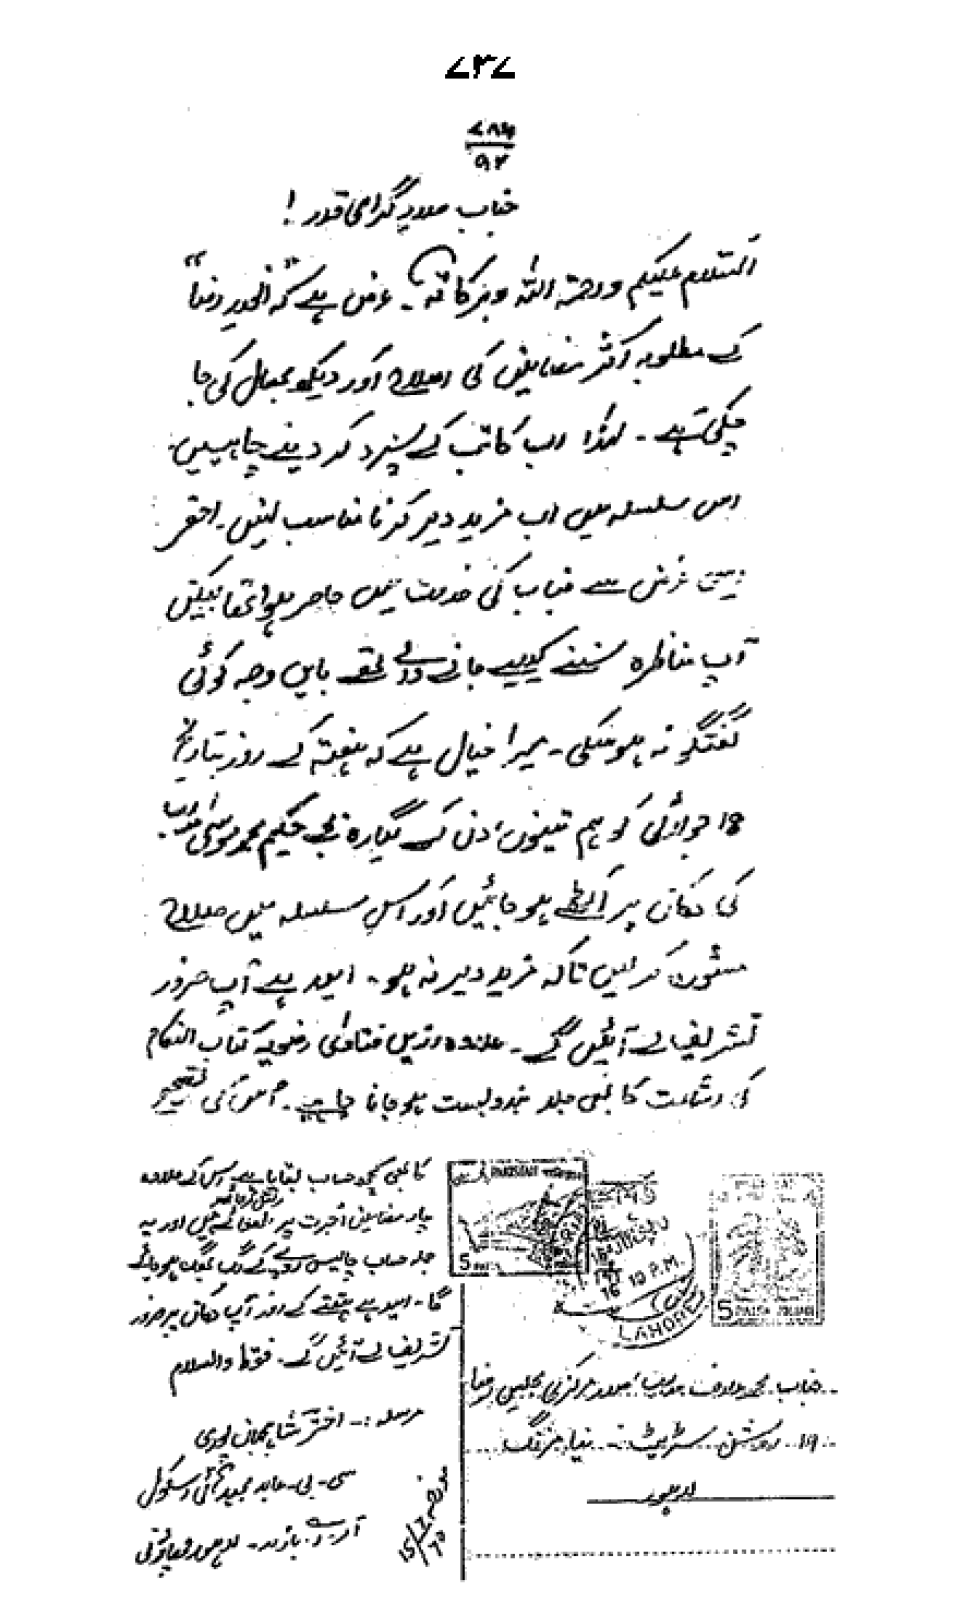 ۷۳۷
۷۸۶
۹۲
جناب صدرِ گرامی قدر !
السّلام علیکم ورحمۃ اللہ وبرکاتہٗ۔ عرض ہے کہ "انوارِ رضا"
کے مطلوبہ اکثر مضامین کی اصلاح اور دیکھ بھال کی جا
چکی ہے۔ لہٰذا اب کاتب کے سپرد کر دینے چاہییں۔
اس سلسلہ میں اب مزید دیر کرنا مناسب نہیں۔ احقر
اسی غرض سے جناب کی خدمت میں حاضر ہوا تھا لیکن
آپ مناظرہ سننے کیلیے جانے والے تھے بایں وجہ کوئی
گفتگو نہ ہوسکی۔ میرا خیال ہے کہ ہفتہ کے روز بتاریخ
18 جولائی کو ہم تینوں دن کے گیارہ بجے حکیم محمد موسیٰ صاحب
کی دکان پر اکٹھے ہو جائیں اور اس سلسلہ میں صلاح
مشورہ کر لیں تاکہ مزید دیر نہ ہو۔ امید ہے آپ ضرور
تشریف لے آئیں گے۔ علاوہ ازیں فتاویٰ رضویہ کتاب النکاح
کی اشاعت کا بھی جلد بندوبست ہو جانا چاہیے۔ اس کی تصحیح
کا بھی کچھ حساب بقایا ہے۔ اس کے علاوہ
چار مضامین اجرت پر نقل کروائے ہیں اور یہ
جملہ حساب چالیس روپے کے لگ بھگ ہو جائے
گا۔ امید ہے ہفتے کے روز آپ دکان پر ضرور
تشریف لے آئیں گے۔ فقط والسلام
مرسلہ :۔ اختر شاہجہانپوری
سی۔ بی۔ ہائی سکول
آر۔ اے۔ بازار۔ لاہور چھاؤنی
مورخہ 15/7/70
PAKISTAN
5
LAHORE
16 JUL
10 P.M.
5 PAISA
جناب محمد عارف صاحب صدر مرکزی مجلسِ رضا
19۔ روشن سٹریٹ۔ نیا مزنگ
لاہور